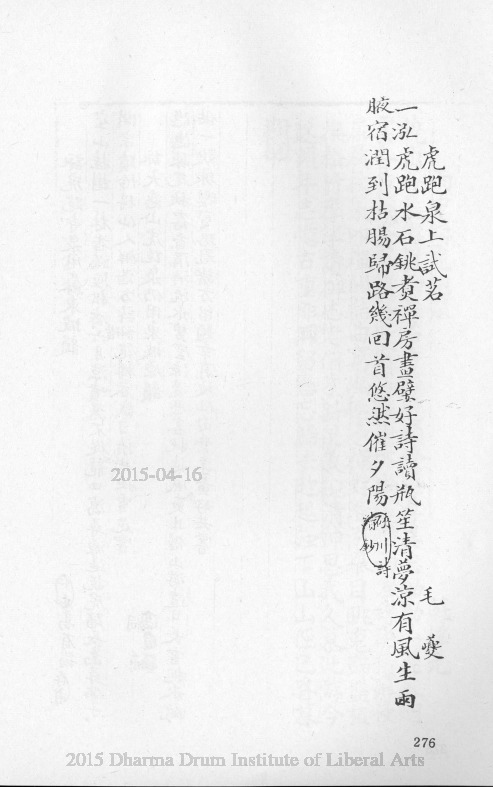 虎跑泉上試茗
毛夔
一泓虎跑水石銚煑禪房畫壁好詩讀瓶笙清夢涼有風生兩
腋宿潤到枯腸歸路幾回首悠然催夕陽
川詩
鈔
2015-04-16
276
2015 Dharma Drum Institute of Liberal Arts